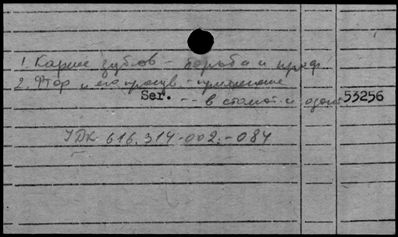 1. Кариес зубов - борьба и проф.
2. Фтор и его произв. - применение
Ser. -- в стомат. и одонт. 53256
УДК 616.314-002.-084